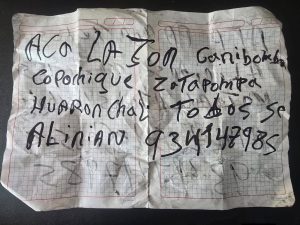 ACA LA ZON Canibamba
Copomique Zotapompa
HUARONChal Todos se
ALiNiAN 934147985